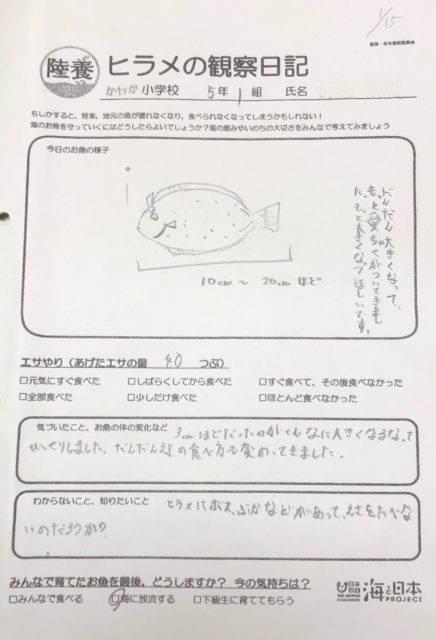 1/15
陸養
ヒラメの観察日記
小学校 5年 1組 氏名
もしかすると、将来、地元の魚が獲れなくなり、食べられなくなってしまうかもしれない!
海のお魚を守っていくにはどうしたらよいでしょうか?海の恵みやいのちの大切さをみんなで考えてみましょう
今日のお魚の様子
だんだん大きくなって、
もっと愛ちゃくがついてきまし
た。もっと大きくなってほしいです。
10cm〜20cmほど
エサやり(あげたエサの量 40 つぶ)
□元気にすぐ食べた □しばらくしてから食べた □すぐ食べて、その後食べなかった
□全部食べた □少しだけ食べた □ほとんど食べなかった
気づいたこと、お魚の体の変化など 3cmほどだったのがこんなに大きくなるなって
びっくりしました。だんだんえさの食べ方も変わってきました。
わからないこと、知りたいこと ヒラメはボス、ぶかなどがあって、えさをたべな
いのだろうか?
みんなで育てたお魚を最後、どうしますか? 今の気持ちは?
□みんなで食べる □海に放流する □下級生に育ててもらう
日本財団
THE NIPPON
FOUNDATION
海と日本
PROJECT